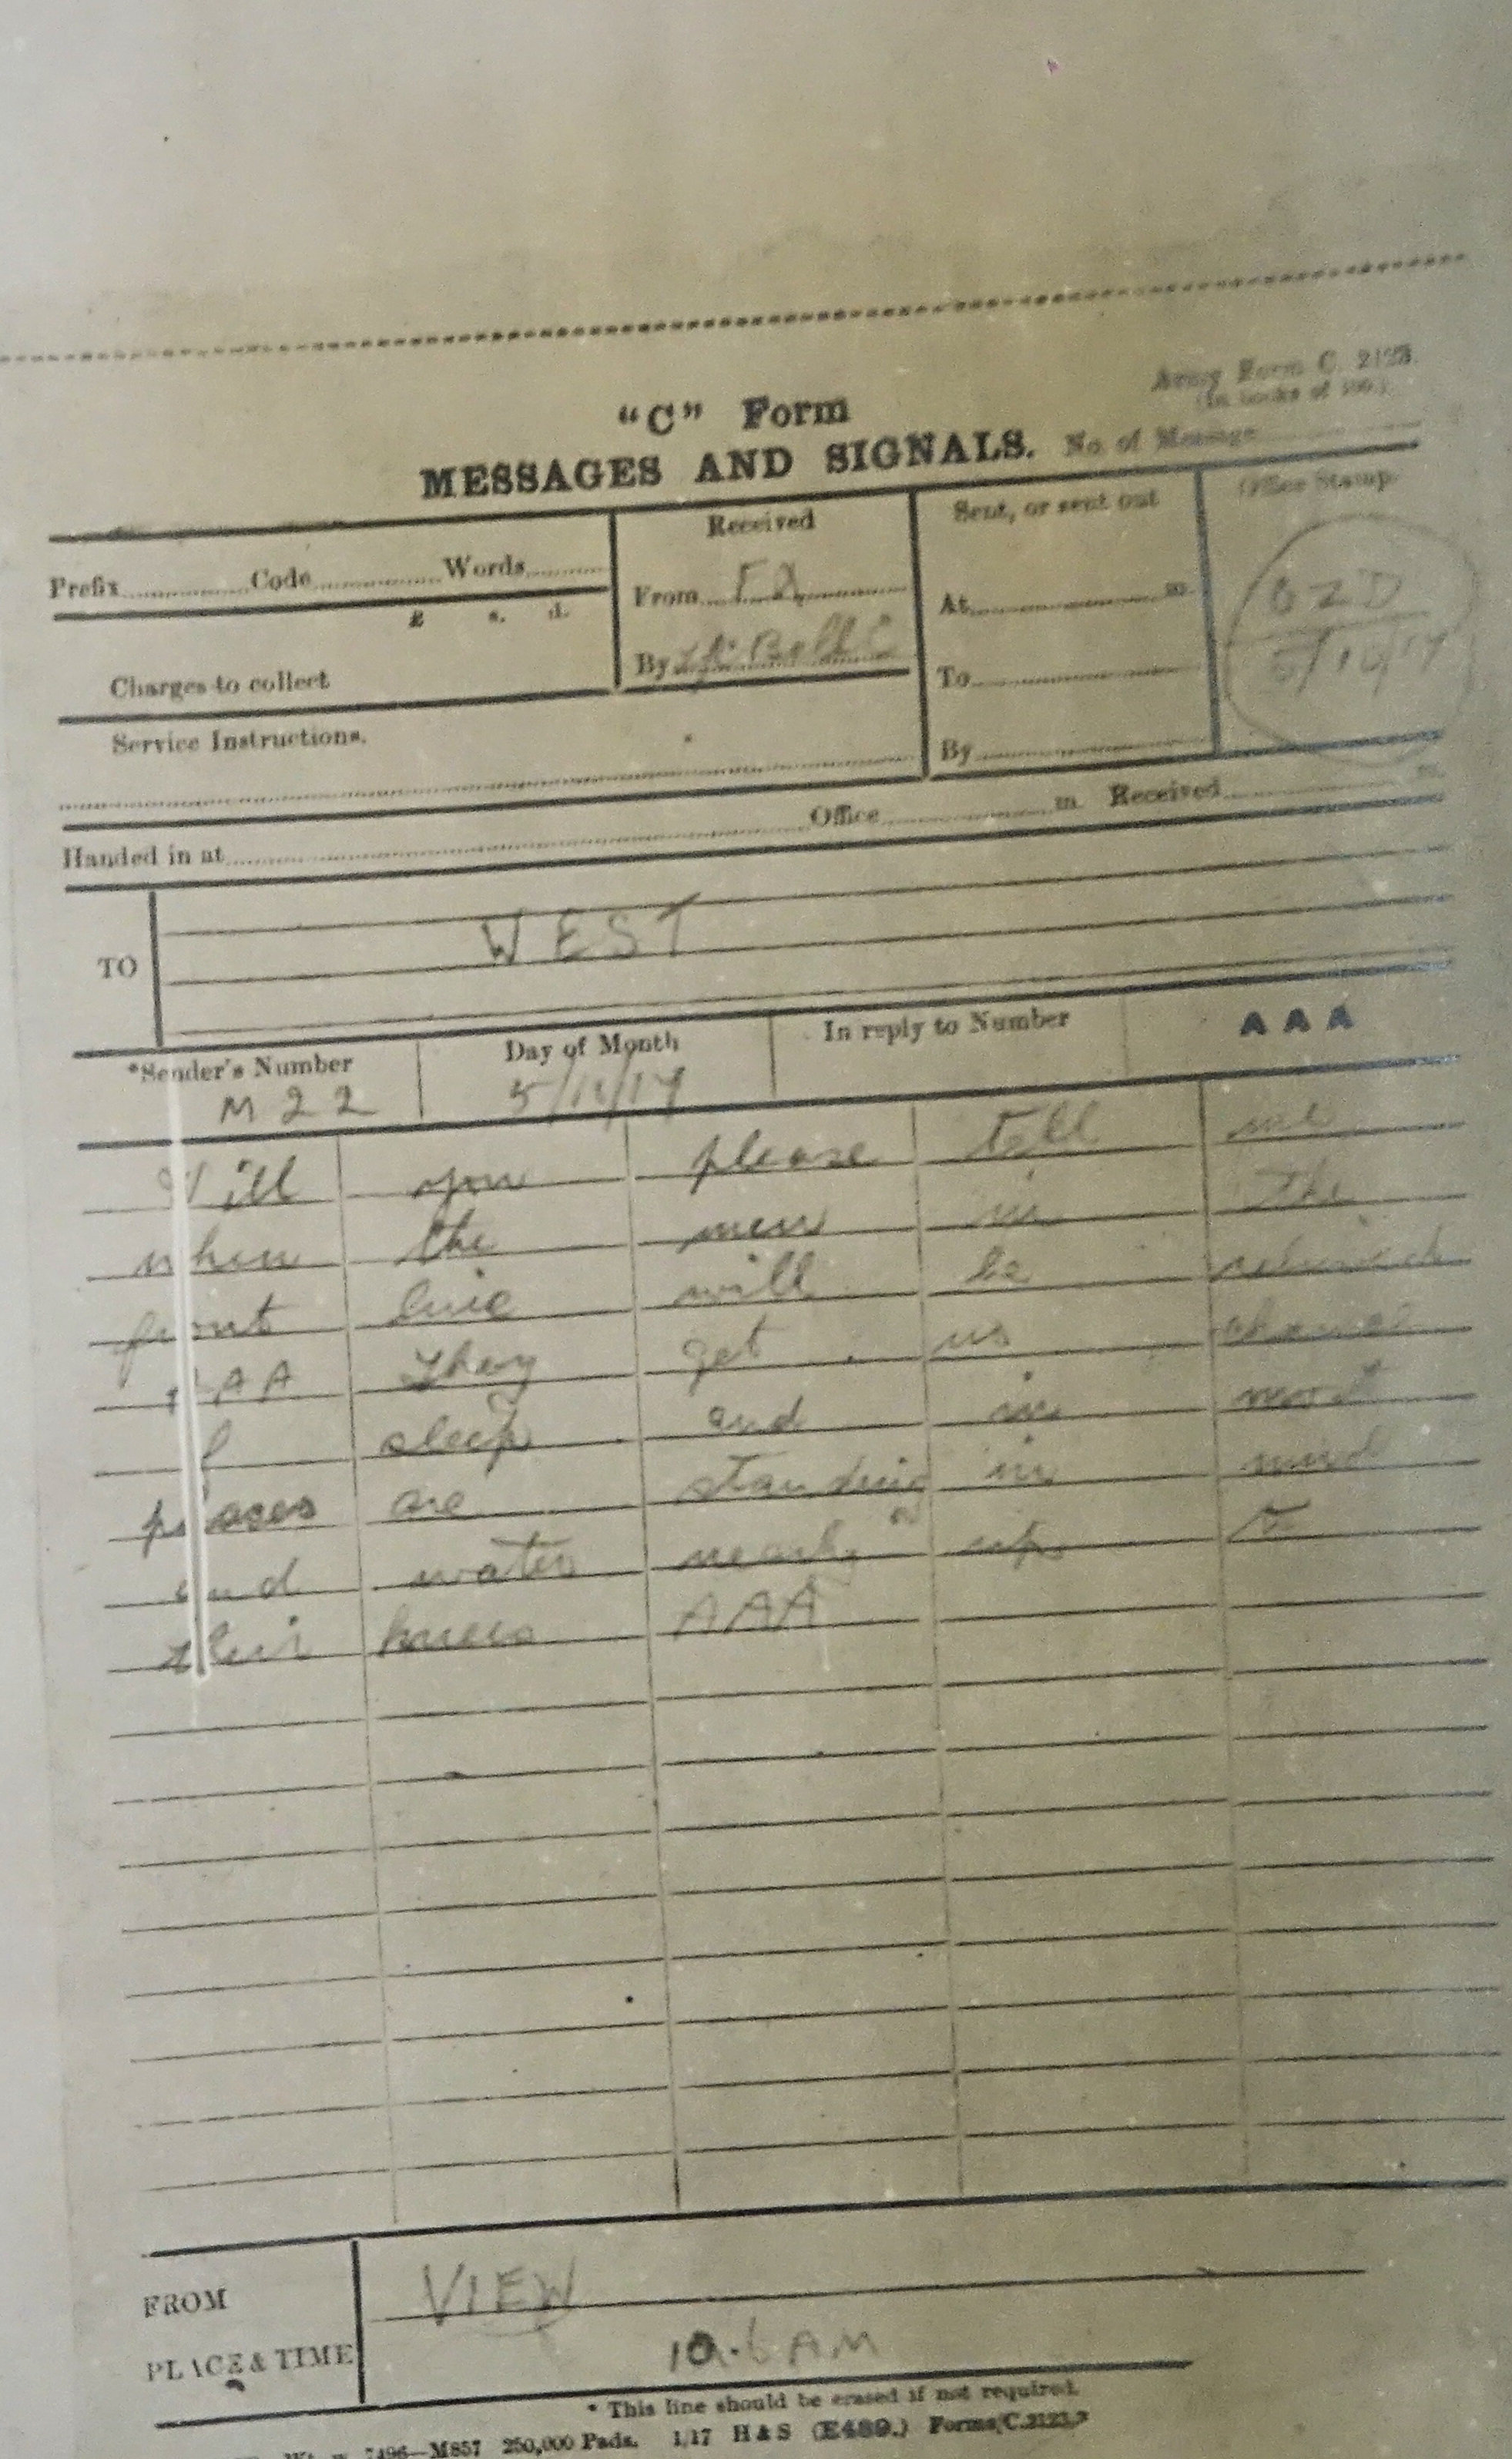 Army Form C. 2123.
(In books of 100.)
"C" Form
MESSAGES AND SIGNALS. No. of Message
Prefix Code Words
£ s. d.
Charges to collect
Service Instructions.
Received
From
By
Sent, or sent out
At m.
To
By
Office Stamp
Handed in at Office m. Received m.
TO WEST
*Sender's Number Day of Month In reply to Number AAA
M22
Will you please tell me
when the men in the
front line will be relieved
AAA They get no chance
of sleep and in most
places are standing in mud
and water nearly up to
their knees AAA
FROM VIEW
PLACE & TIME 10.6 AM
* This line should be erased if not required.
7496—M857 250,000 Pads. 1/17 H & S (E489.) Forms/C.2123/